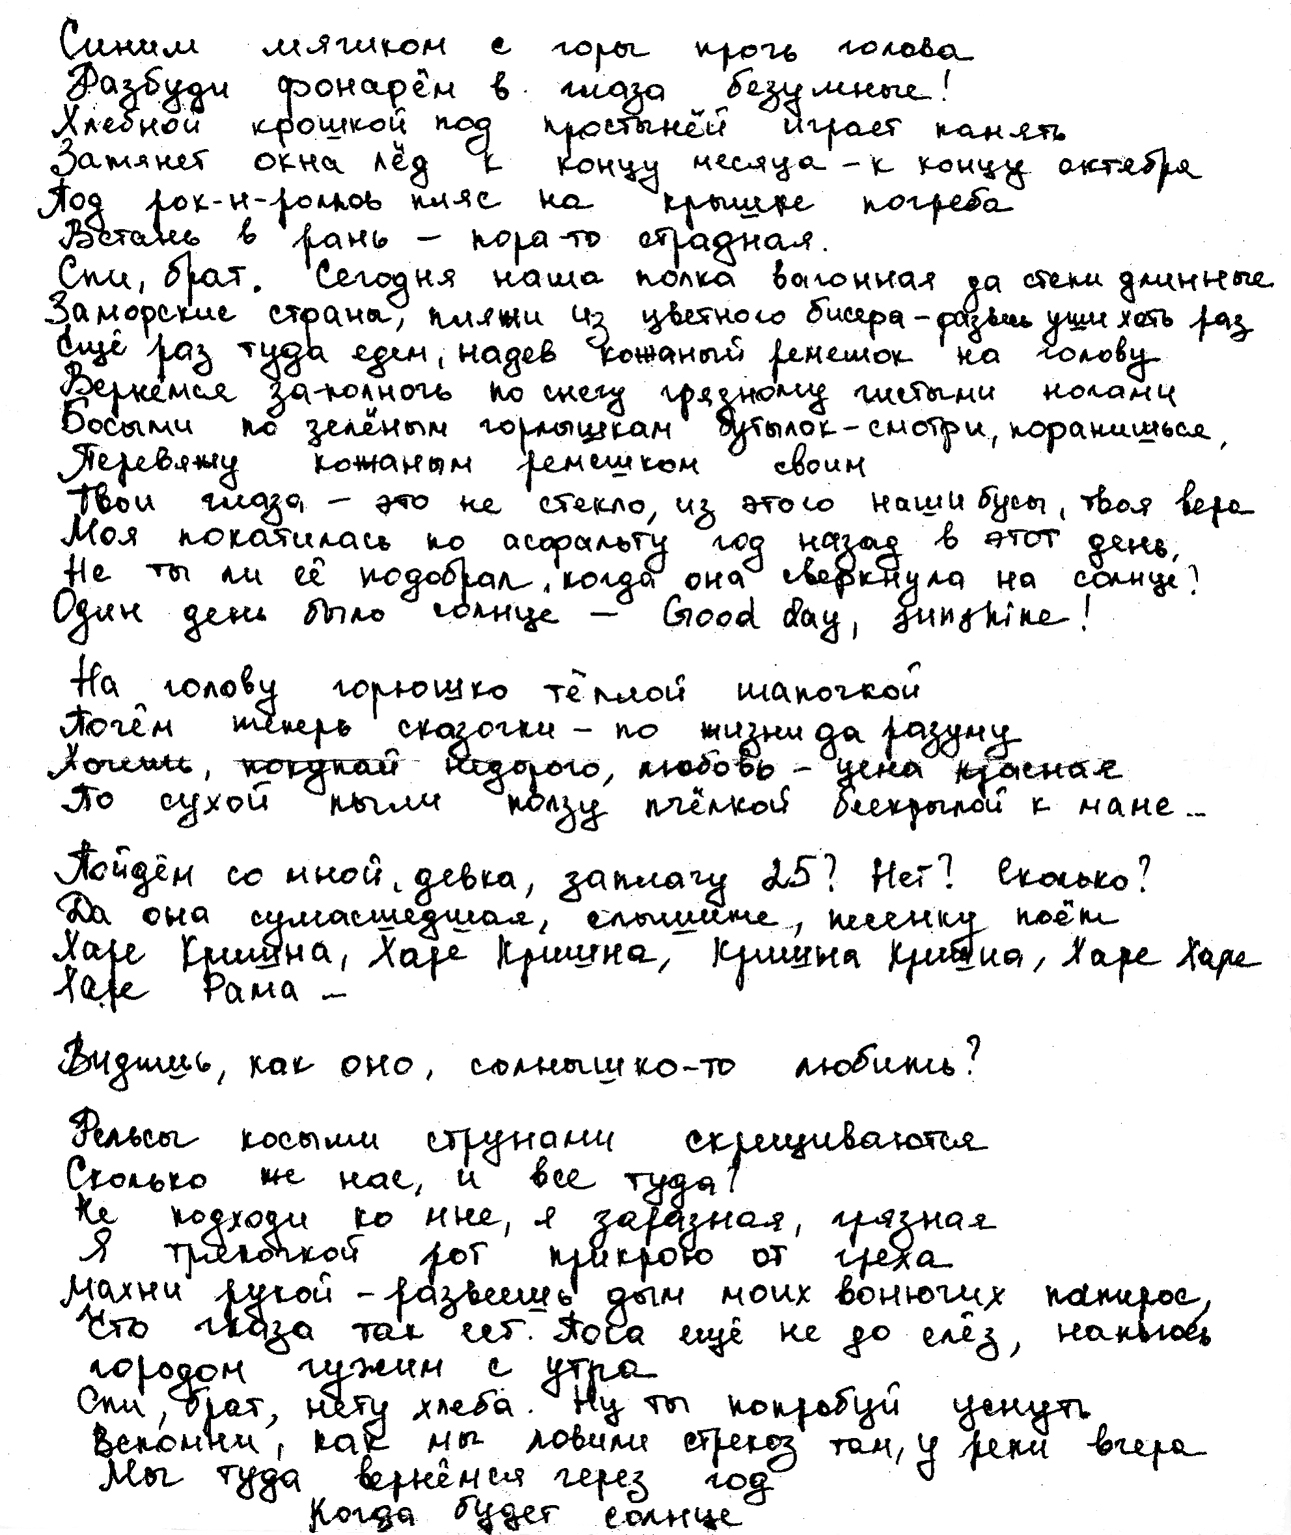 Синим мячиком с горы прочь голова
Разбуди фонарём в глаза безумные!
Хлебной крошкой под простынёй играет память
Затянет окна лёд к концу месяца – к концу октября
Под рок-н-роллов пляс на крышке погреба
Встань в рань – пора-то страдная.
Спи, брат. Сегодня наша полка вагонная да степи длинные
Заморские страны, пляжи из цветного бисера – развесь уши хоть раз
Ещё раз туда едем, надев кожаный ремешок на голову
Вернёмся за-полночь по снегу грязному чистыми ногами
Босыми по зелёным горлышкам бутылок – смотри, поранишься,
Перевяжу кожаным ремешком своим
Твои глаза – это не стекло, из этого наши бусы, твоя вера
Моя покатилась по асфальту год назад в этот день,
Не ты ли её подобрал, когда она сверкнула на солнце?
Один день было солнце – Good day, sunshine!
На голову горюшко тёплой шапочкой
Почём теперь сказочки – по жизни да разуму
Хочешь, покупай недорого, любовь – цена красная
По сухой пыли ползу пчёлкой бескрылой к маме...
Пойдём со мной, девка, заплачу 25? Нет? Сколько?
Да она сумасшедшая, слышите, песенку поёт
Харе Кришна, Харе Кришна, Кришна Кришна, Харе Харе
Харе Рама...
Видишь, как оно, солнышко-то любить?
Рельсы косыми струнами скрещиваются
Сколько же нас, и все туда?
Не подходи ко мне, я заразная, грязная
Я тряпочкой рот прикрою от греха
Махни рукой – развеешь дым моих вонючих папирос,
Что глаза так ест. Пока ещё не до слёз, напьюсь
городом чужим с утра
Спи, брат, нету хлеба. Ну ты попробуй уснуть
Вспомни, как мы ловили стрекоз там, у реки вчера
Мы туда вернёмся через год
Когда будет солнце